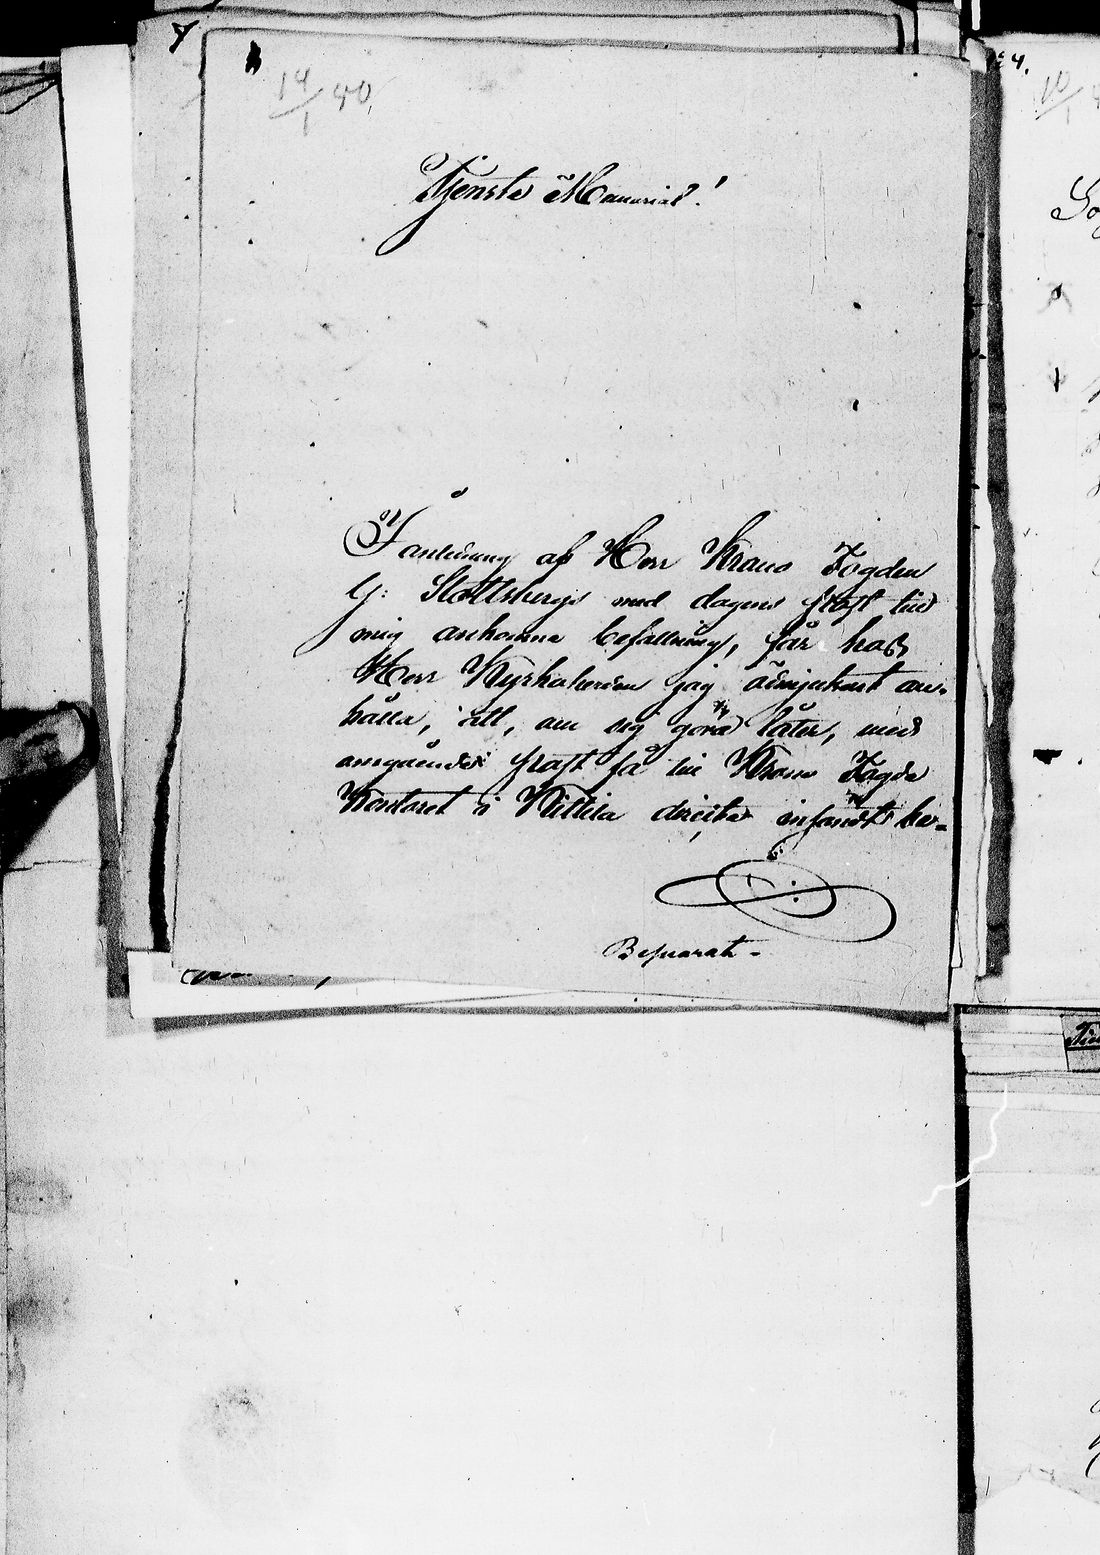 14/1 40
Tjenste Memorial!
I anledning af Herr Krono Fogden
G: Slottsbergs med dagens post till
mig ankomna befallning, får hos
Herr Kyrkoherden jag ödmjukast an-
hålla, att, om sig göra låter, med
omgående post få till Krono Fogde
Kontoret i Kittilä directe insändt be-
Besvarat -